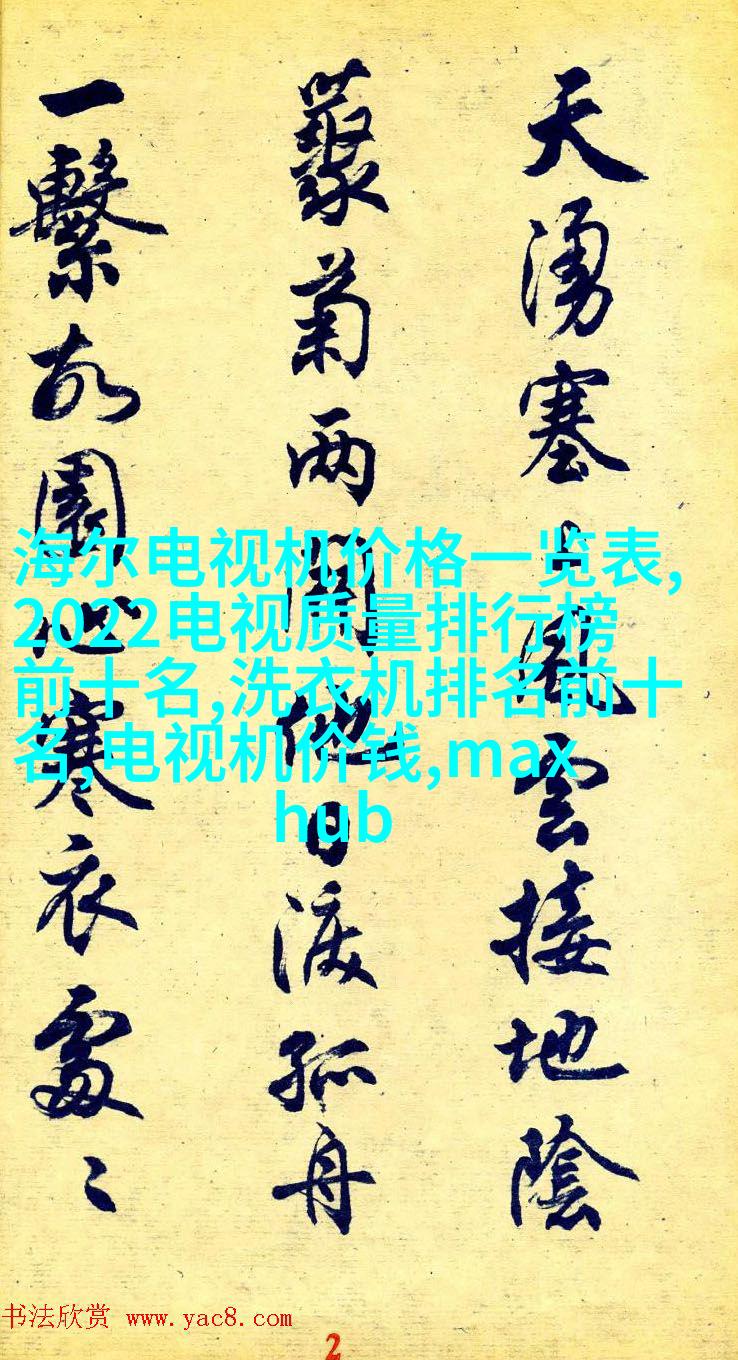 天湧塞上風雲接地陰
藂菊两開他日淚孤舟
一繫故園心寒衣處〻
海尔电视机价格一览表,
2022电视质量排行榜
前十名,洗衣机排名前十
名,电视机价钱,max
hub
书法欣赏 www.yac8.com
2